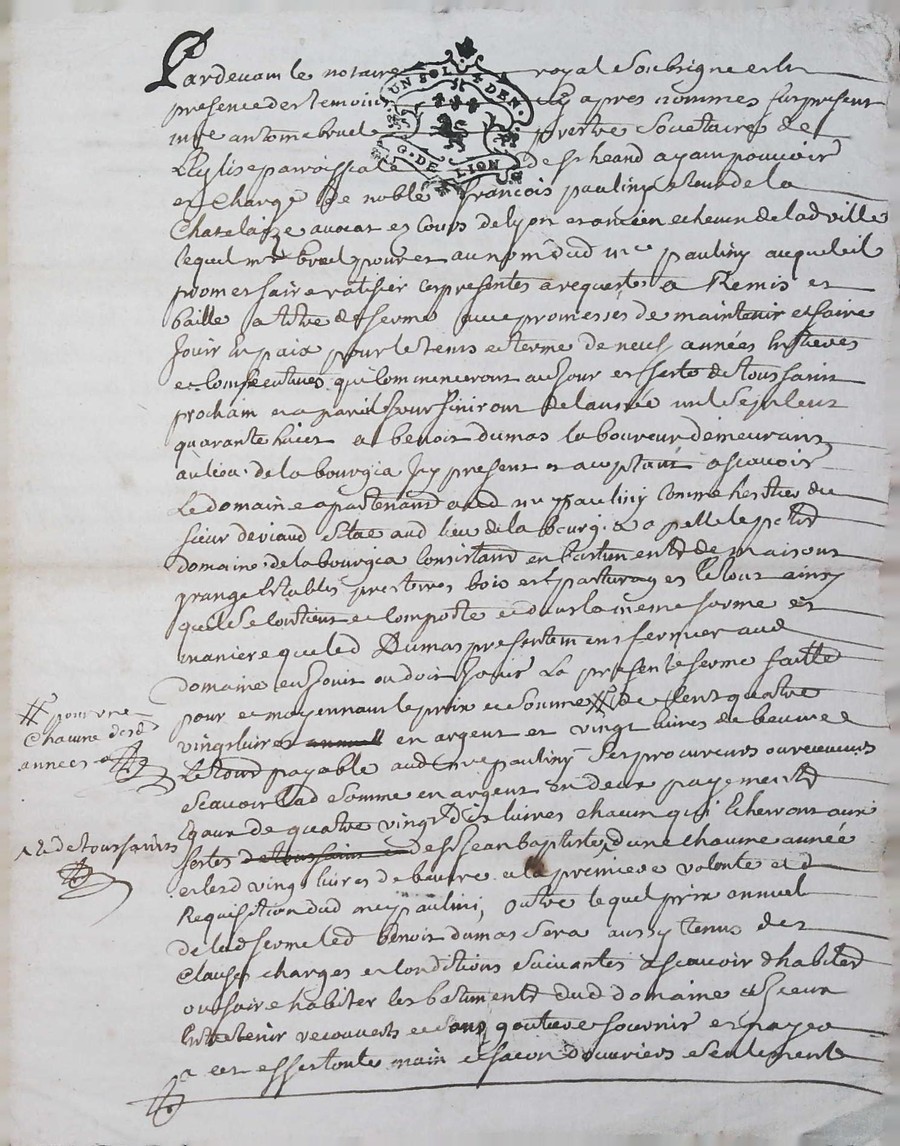 Pardevant le notaire royal soubsigne et en
UN SOL 4 DEN.
G. DE LION
presence des temoins cy apres nommes fut present
mre antoine bruel prestre societaire de
L'Eglise parroissiale de St heand ayant pouvoir
et Charge de noble francois pauliny sieur de la
Chatelaize avocat es Cours de lyon et ancien echevin de lad ville
lequel mre bruel pour et au nom dud mre pauliny auquel il
promet faire ratifier ces presentes a requeste a Remis et
baille a titre de ferme avec promesses de maintenir et faire
Jouir en paix pour le tems et terme de neuf années entieres
et Consecutives qui Commenceront au Jour et feste de toussaint
prochain et a pareil Jour finiront de l'année mil sept cent
quarante huict a benoit dumas laboureur demeurant
au lieu de la bourgia Icy present et acceptant ascavoir
Le domaine apartenant aud mre pauliny Comme heritier du
sieur deviaud situe aud lieu de la bourgia apelle le petit
domaine de la bourgia Consistant en bastiments de maisons
grange Estables pres terres bois et pasturages le tout ainsy
quil se Contient et Comporte et dans la meme forme et
maniere que led Dumas presentement fermier aud
domaine en Jouit ou doit Jouir La presente ferme faitte
pour et moyennant le prix et somme # de Cent quatre
# pour une
Chacune desd
années
vingt livres annuel en argent et vingt livres de beurre
Le tout payable aud mre pauliny ses procureurs ou receveurs
scavoir lad somme en argent en deux payements
Egaux de quatre vingt dix livres chacun qui Echerront aux
festes de toussaint et de St Jean baptiste d'une chacune année
et de toussaints
et lesd vingt livres de beurre a la premiere volonte et
Requisition dud mre paulini, outre lequel prix annuel
de lad ferme led benoit dumas sera aussy tenu des
Clauses charges et Conditions suivantes ascavoir d'habiter
ou faire habiter les batiments dud domaine et Iceux
Entretenir recouverts et sans goutiere fournir et payer
a cet effet toute main et facon d'ouvriers seulement